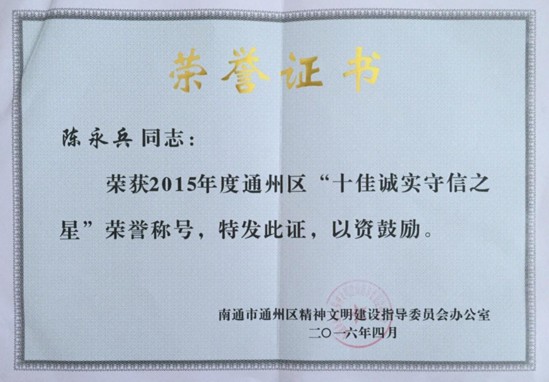 荣誉证书
陈永兵同志：
荣获2015年度通州区“十佳诚实守信之
星”荣誉称号，特发此证，以资鼓励。
南通市通州区精神文明建设指导委员会办公室
二〇一六年四月